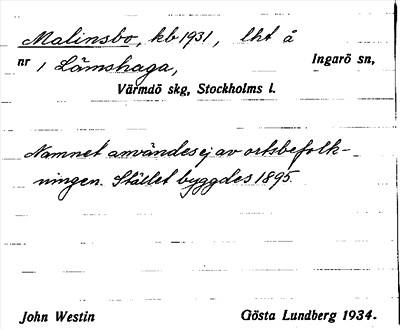 Malinsbo, kb 1931, lht å
nr 1 Lämshaga, Ingarö sn,
Värmdö skg, Stockholms l.
Namnet användes ej av ortsbefolk-
ningen. Stället byggdes 1895.
John Westin Gösta Lundberg 1934.